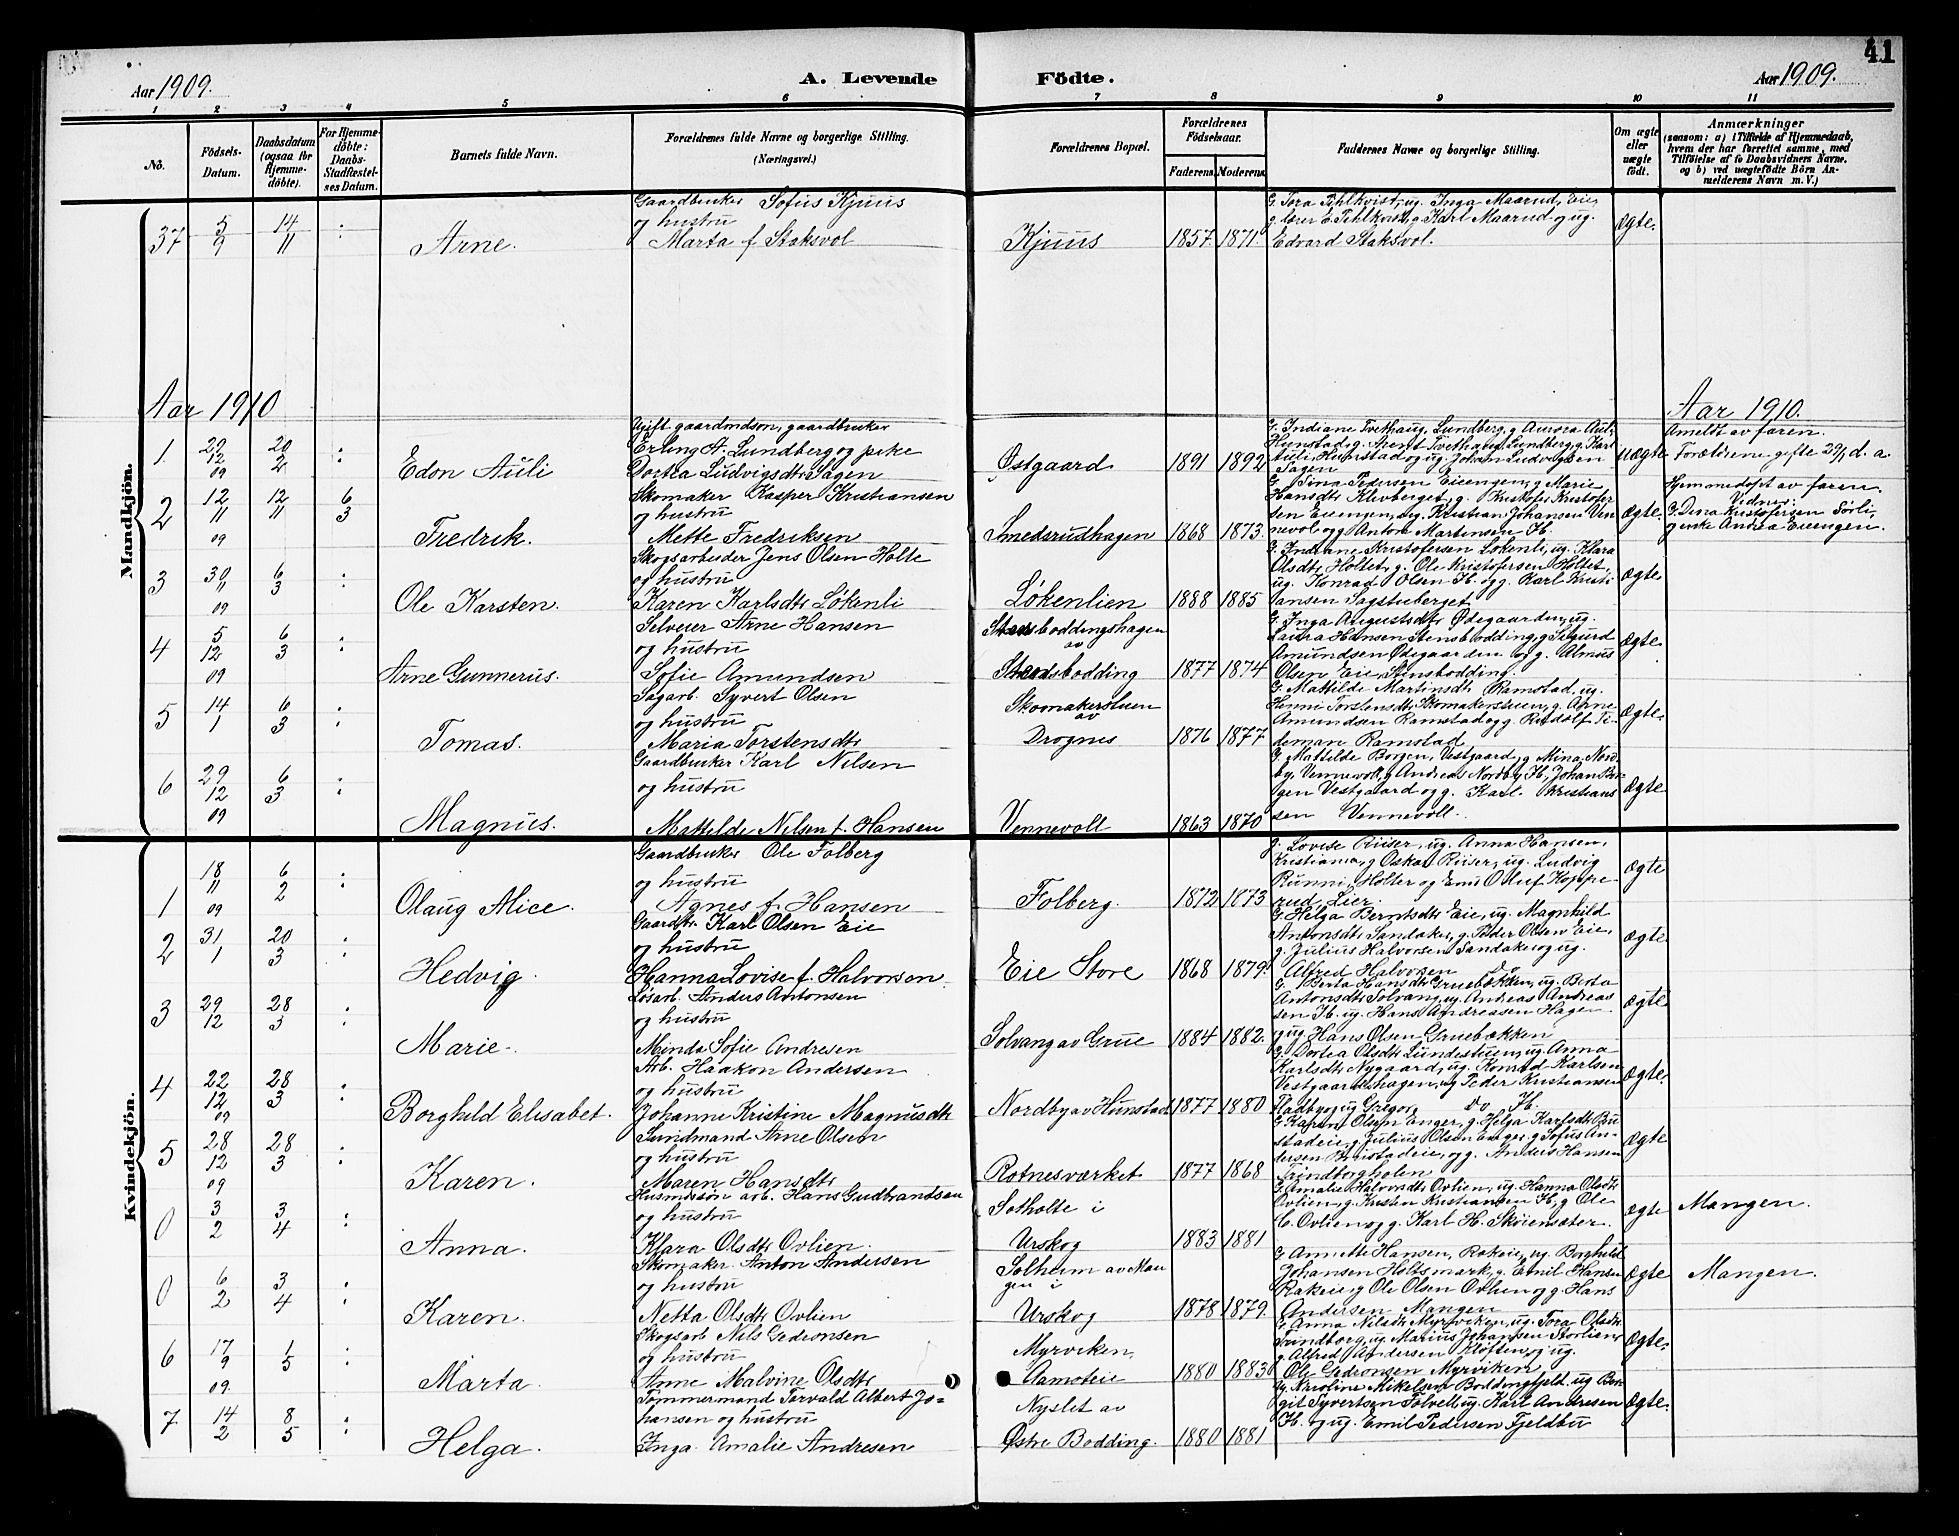 41
Aar 1909.
A. Levende
Födte.
Aar 1909.
1 2 3 4 5 6 7 8 9 10 11
No.
Födsels-
Datum.
Daabsdatum
(ogsaa for
Hjemme-
döbte).
For Hjemme-
döbte:
Daabs-
Stadfæstel-
ses Datum.
Barnets fulde Navn.
Forældrenes fulde Navne og borgerlige Stilling.
(Næringsvei.)
Forældrenes Bopæl.
Forældrenes
Födselsaar.
Faderens.
Moderens.
Faddernes Navne og borgerlige Stilling.
Om ægte
eller
uægte
födt.
Anmærkninger
(saasom: a) i Tilfælde af Hjemmedaab,
hvem der har forrettet samme, med
Tilföielse af to Daabsvidners Navne.
og b) ved uægtefödte Börn An-
melderens Navn m. V.)
Mandkjön.
37 5/9 14/11 : Arne.
Gaardbruker Sofus Kjuus
og hustru
Marta f. Staksvol
Kjuus 1857 1871.
Edvard Staksvol.
Ægte.
Aar 1910
Aar 1910.
1. 29/12 09 20/2 : Edon Auli
Ugift gaardmdsøn, gaardbruker
Erling A. Lundberg og pike
Dortea Ludvigsdtr Sagen
Østgaard 1891 1892
G. Indiane Tvethaug, Lundberg, g. Aurora Auli
Hunstad, g. Arent Tvethaug Lundberg, g. Karl
Auli, Hunstad og ug. Johan Ludvigsen
Sagen
uægte
Anmeldt av faren.
Forældrene gifte 29/1 d. a.
2 12/11 09 12/11 6/3 Fredrik.
Skomaker Kasper Kristiansen
og hustru
Mette Fredriksen
Smedsrudhagen 1868 1873.
G. Tina Pedersen Eiengen, g Marie
Hansdtr Klevberget, g. Kristofer Kristofer
sen Eiengen, ug. Kristian Johansen Ven
nevol og g Anton Martinsen H.
Ægte.
Hjemmedøpt av faren.
Vidner:
G. Dina Kristofersen Sørli,
g enke Andrea Eiengen.
3 30/11 09 6/3 : Ole Karsten.
Skogsarbeider Jens Olsen Holte
og hustru
Karen Karlsdtr Løkenli
Løkenlien 1888 1885
G. Indiane Kristofersen Løkenli, ug. Klara
Olsdtr Holtet, g. Ole Kristofersen Holtet,
ug. Konrad Olsen H. og g. Karl Kristi
ansen Sagstuberget
Ægte.
4 5/12 09 6/3 : Arne Gunnerus.
Selveier Arne Hansen
og hustru
Sofie Amundsen
Stensboddingshagen
av
Stensbodding 1877 1874
G. Inga Augustsdtr Ødegaarden, ug.
Laura Hansen Stensbodding, g Sigurd
Amundsen Ødegaarden og g. Almus
Olsen Eie, Stensbodding.
Ægte.
5 14/1 6/3 : Tomas.
Sagarb. Syvert Olsen
og hustru
Maria Torstensdtr
Skomakerstuen
av
Drognes 1876 1877
G. Mathilde Martinsdtr Ramstad, ug.
Hanni Torstensdtr Skomakerstuen, g. Arne
Amundsen Ramstad og g. Rudolf Ti-
deman Ramstad
Ægte.
6 29/12 09 6/3 : Magnus.
Gaardbruker Karl Nilsen
og hustru
Mathilde Nilsen f. Hansen
Vennevoll 1863 1870
G. Mathilde Borgen, Vestgaard, g Mina Nord
by, Vennevoll, g Andreas Nordby H, Johan Bor-
gen Vestgaard og g. Karl Kristians
sen Vennevoll.
Ægte
Kvindekjön.
1 18/11 09 6/2 : Olaug Alice.
Gaardbruker Ole Folberg
og hustru
Agnes f. Hansen
Folberg. 1872 1873
g. Lovise Riiser, ug. Anna Hansen,
Kristiania, g Oskar Riiser, ug. Ludvig
Runni Holter og Emil Oluf Koppe-
rud, Lier.
Ægte
2 31/1 20/3 : Hedvig.
Gaardbr. Karl Olsen Eie
og hustru
Hanna Lovise f. Halvorsen
Eie Store 1868 1879.
G. Helga Berntsdtr Eie, ug. Magnhild
Antonsdtr Sandaker, g. Peder Olsen Eie,
g. Julius Halvorsen Sandaker og ug.
Alfred Halvorsen do
Ægte
3 29/12 28/3 : Marie.
Løsarb. Anders Antonsen
og hustru
Minda Sofie Andresen
Solvang av Grue 1884 1882.
G. Berta Hansdtr Gruebækken, ug. Berta
Antonsdtr Solvang, ug. Andreas Andreas
sen H. ug. Hans Andreasen Hagen
og ug. Hans Olsen Gruebækken
Ægte.
4 22/12 09 28/3 : Borghild Elisabet.
Arb. Haakon Andersen
og hustru
Johanne Kristine Magnusdtr
Nordby av Hunstad 1877 1880
G. Dortea Olsdtr Lundestuen, ug. Anna
Karlsdtr Nygaard, ug. Konrad Karlsen
Vestgaardshagen, ug Peder Kristiansen
Ægte.
5 28/12 09 28/3 : Karen.
Sundmand Arne Olsen
og hustru
Maren Hansdtr
Rotnesværket 1877 1868
G Karen Olsen Enger, g. Helga Karlsdtr Bru
stadeie, g Julius Olsen Enger, g Sofus An-
dersen Brustadeie, og g. Anders Hansen
Trindborgholen
Ægte
0 3/2 3/4 : Anna.
Husmdssøn arb. Hans Gudbrandsen
og hustru
Klara Olsdtr Ovlien.
Sotholte i
Urskog 1883 1881
G. Amalie Halvorsdtr Ovlien, ug. Hanna Olsdtr
Ovlien, g. Kristen Kristiansen H, g Ole
C. Ovlien og g. Karl H. Skøiensæter.
Ægte
Mangen.
0 6/2 3/4 : Karen.
Skomaker Anton Andersen
og hustru
Netta Olsdtr Ovlien
Solheim av Man
gen i
Urskog 1878 1879.
G Annette Hansen, Rakeie, ug. Borghild
Johansen Holtsmark, g. Emil Hansen
Rakeie, g Ole Olsen Ovlien og g. Hans
Andersen Mangen
Ægte
Mangen.
6 17/9 09. 1/5 : Marta.
Skogsarb Nils Gedronsen
og hustru
Anne Malvine Olsdtr
Myrviken,
Aamoteie 1880 1883
G Anna Nilsdtr Myrviken, ug. Tora Olsdtr
Trindborg, ug. Marius Johansen Storlien,
g. Alfred Andersen Kløften, og ug.
Ole Gedronsen Myrviken
Ægte.
7 14/2 8/5 : Helga.
Tømmermand Torvald Albert Jo-
hansen og hustru
Inga Amalie Andresen
Nyslet av
Østre Bodding. 1880 1881
Ug. Karoline Mikelsen Boddingfjeld, ug Bor
git Syvertsen Folvell, ug. Karl Andresen
H. og ug. Emil Pedersen Fjeldbu
Ægte.